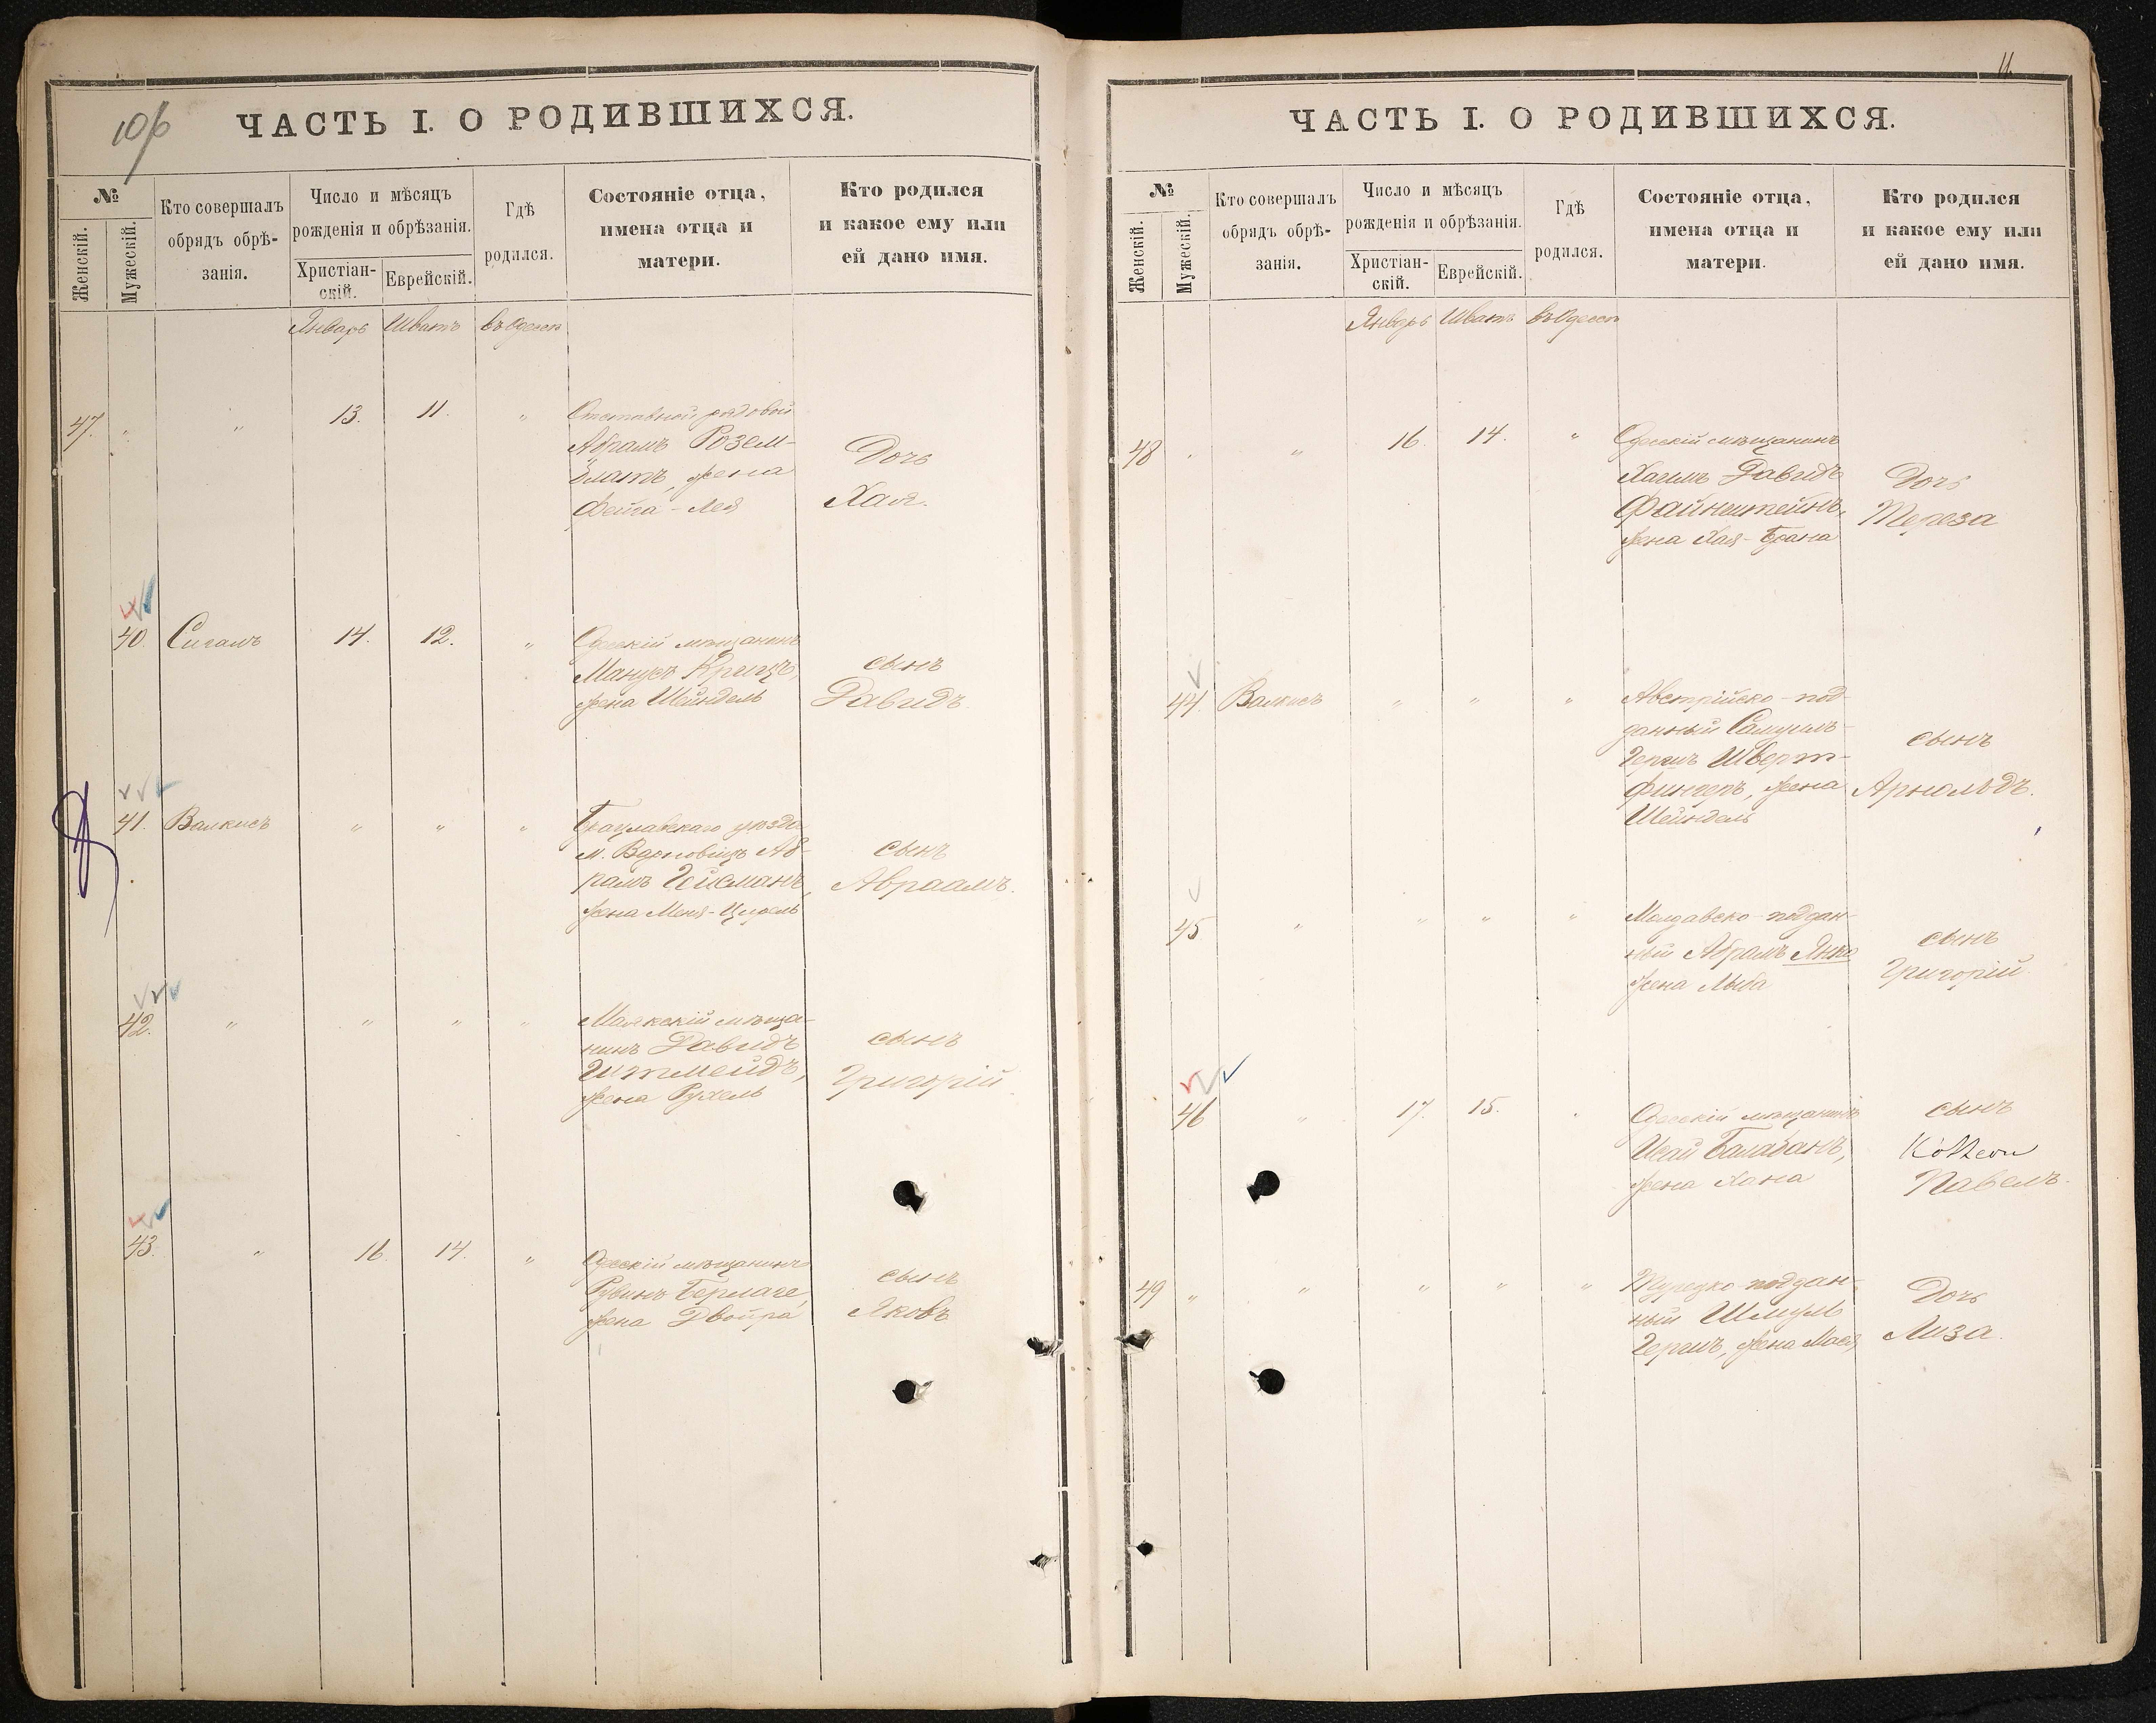 10/б
ЧАСТЬ I. О РОДИВШИХСЯ.
№
Женскій.
Мужескій.
Кто совершалъ
обрядъ обрѣ-
занія.
Число и мѣсяцъ
рожденія и обрѣзанія.
Христіан-
скій.
Еврейскій.
Гдѣ
родился.
Состояніе отца,
имена отца и
матери.
Кто родился
и какое ему или
ей дано имя.
Январь Шватъ въ Одессѣ
47. " " 13. 11. "
Отставной рядовой
Абрамъ Розем-
блатъ, жена
Фейга-Лея
Дочь
Хая.
40. Сигалъ 14. 12. "
Одесскій мѣщанинъ
Манусъ Крицъ,
жена Шейндель
сынъ
Давидъ.
41. Валкисъ " " "
Брацлавскаго уѣзда
м. Аб-
рамъ Гисманъ,
жена Меня-Цирель
сынъ
Авраамъ.
42. " " " "
Маякскій мѣща-
нинъ Давидъ
Штмейдъ,
жена Рухель
сынъ
Григорій
43. " 16. 14. "
Одесскій мѣщанинъ
Рувинъ Берлаге,
жена Двойра
сынъ
Яковъ
11.
ЧАСТЬ I. О РОДИВШИХСЯ.
№
Женскій.
Мужескій.
Кто совершалъ
обрядъ обрѣ-
занія.
Число и мѣсяцъ
рожденія и обрѣзанія.
Христіан-
скій.
Еврейскій.
Гдѣ
родился.
Состояніе отца,
имена отца и
матери.
Кто родился
и какое ему или
ей дано имя.
Январь Шватъ въ Одессѣ
48 " " 16. 14. "
Одесскій мѣщанинъ
Хаимъ Давидъ
Файнштейнъ,
жена Хая-Брана
Дочь
Тереза
44. Валкисъ " " "
Австрійско-под-
данный Самуилъ-
Гершъ Шверт-
фингеръ, жена
Шейндель
сынъ
Арнольдъ.
45 " " " "
Молдавско-поддан-
ный Абрамъ Янко
жена Лыба
сынъ
Григорій
46 " 17. 15. "
Одесскій мѣщанинъ
Исай Балабанъ,
жена Хана
сынъ
Павелъ.
49 " " " " "
Турецко-поддан-
ный Шмуль
Гершъ, жена
Дочь
Лиза.